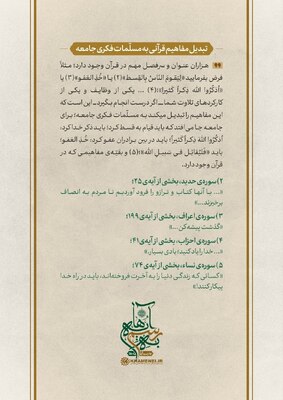 تبدیل مفاهیم قرآنی به مسلّمات فکری جامعه
هزاران عنوان و سرفصل مهم در قرآن وجود دارد؛ مثلاً
فرض بفرمایید «لِیَقومَ النّاسُ بِالقِسط»(۲) یا «خُذِ العَفو»(۳) یا
«اُذکُرُوا اللهَ ذِکراً کَثیراً»؛(۴) ... یکی از وظایف و یکی از
کارکردهای تلاوت شما ــ اگر درست انجام بگیرد ــ این است که
این مفاهیم را تبدیل میکند به مسلّمات فکری جامعه؛ برای
جامعه جا می‌افتد که باید قیام به قسط کرد؛ باید ذکر خدا کرد،
اُذکُرُوا اللهَ ذِکراً کَثیراً؛ باید در بین برادران عفو کرد، خُذِ العَفو؛
باید «فَلیُقاتِل فی سَبیلِ الله»؛(۵) و بقیّه‌ی مفاهیمی که در
قرآن وجود دارد.
۲) سوره‌ی حدید، بخشی از آیه‌ی ۲۵؛
«... با آنها کتاب و ترازو را فرود آوردیم تا مردم به انصاف
برخیزند...»
۳) سوره‌ی اعراف، بخشی از آیه‌ی ۱۹۹؛
«گذشت پیشه کن ...»
۴) سوره‌ی احزاب، بخشی از آیه‌ی ۴۱؛
«... خدا را یاد کنید؛ یادی بسیار.»
۵) سوره‌ی نساء، بخشی از آیه‌ی ۷۴؛
«کسانی که زندگی دنیا را به آخرت فروخته‌اند، باید در راه خدا
پیکار کنند؛»
KHAMENEI.IR